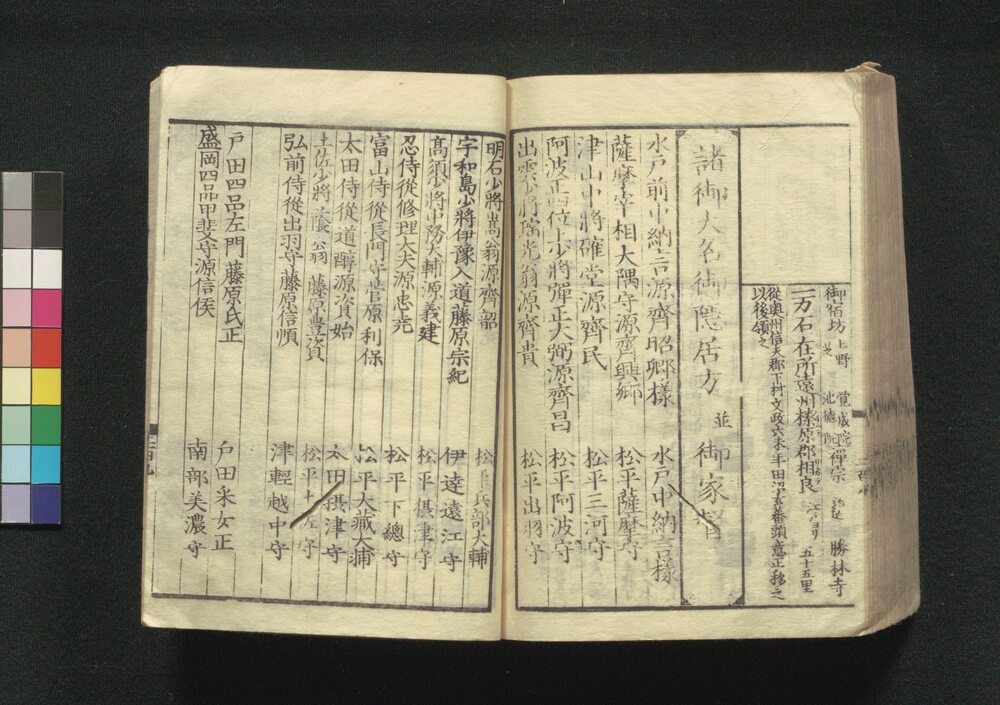 御宿坊 上野 覚成院
芝 池徳院 禅宗 駒込 勝林寺
二万石 在所遠州榛原郡相良 江戸ヨリ 五十五里
從奥州信夫郡下村文政六未年田沼玄蕃頭意正移之
以後領之
諸御大名御隠居方 並 御家督
水戸前中納言源齊昭卿様 水戸中納言様
薩摩宰相大隅守源齊興卿 松平薩摩守
津山中將確堂源齊民 松平三河守
阿波正四位上少將彈正大弼源齊昌 松平阿波守
出雲少將瑤光翁源齊貴 松平出羽守
明石少將嵩翁源齊韶 松平兵部大輔
宇和島少將伊豫入道藤原宗紀 伊達遠江守
高須少將中務大輔源義建 松平摂津守
忍侍從修理大夫源忠尭 松平下總守
富山侍從長門守菅原利保 松平大藏大輔
太田侍從道醇源資始 太田摂津守
土佐少將養翁藤原豊資 松平土佐守
弘前侍從出羽守藤原信順 津輕越中守
戸田四品左門藤原氏正 戸田采女正
盛岡四品甲斐守源信侯 南部美濃守